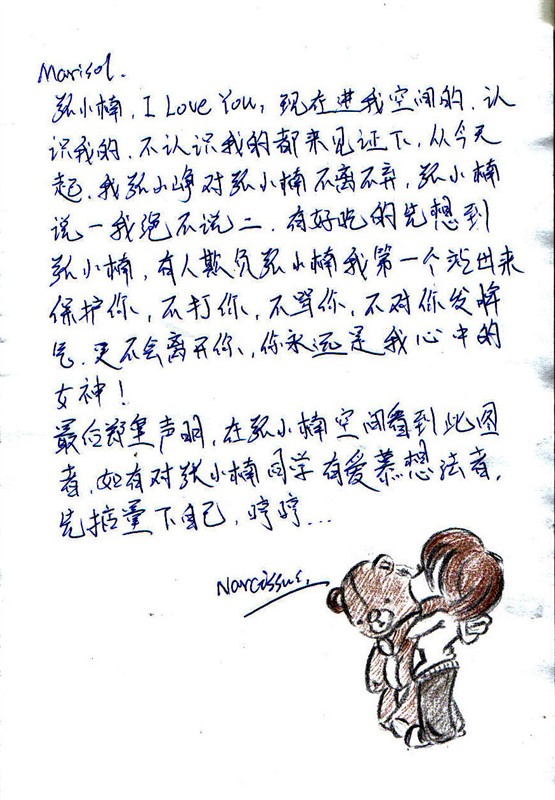 Marisol.
张小楠，I Love You，现在进我空间的，认
识我的，不认识我的都来见证下，从今天
起，我张小峥对张小楠不离不弃，张小楠
说一我绝不说二，有好吃的先想到
张小楠，有人欺负张小楠我第一个站出来
保护你，不打你，不骂你，不对你发脾
气，更不会离开你，你永远是我心中的
女神！
最后郑重声明，在张小楠空间看到此图
者，如有对张小楠同学有爱慕想法者，
先掂量下自己，哼哼...
Narcissus.